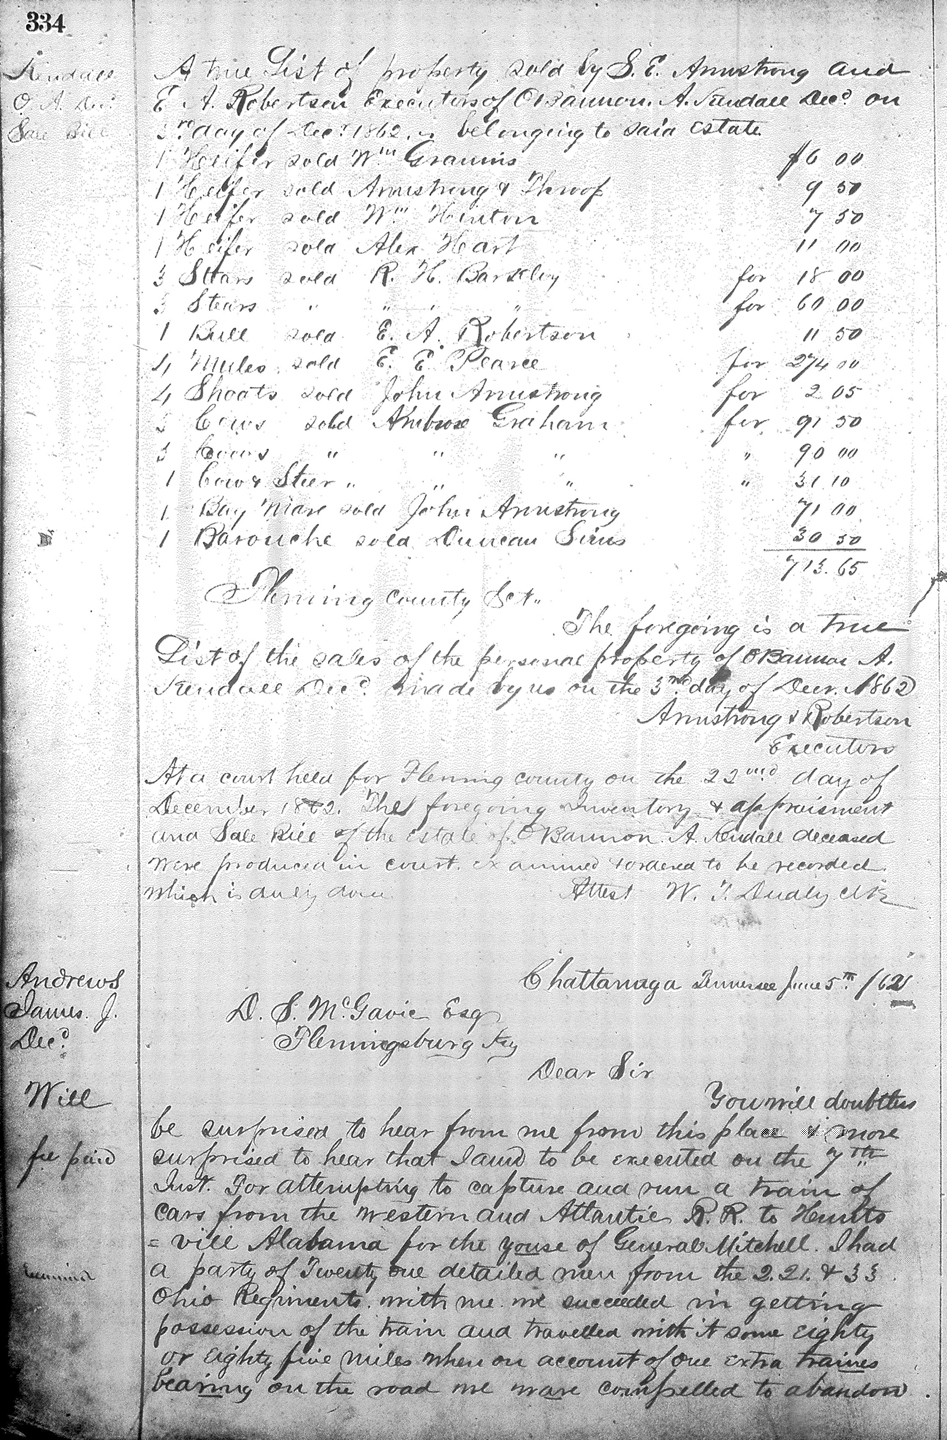 334
Kendall
O. A. Decd
Sale Bill
A true List of property sold by S. E. Armstrong and
E. A. Robertson Executors of OBannon. A. Kendall Decd. on
3rd day of Decr. 1862. belonging to said estate
1 Heifer sold Wm Grannis $6 00
1 Heifer sold Armstrong & Throop 9 50
1 Heifer sold Wm Hinton 7 50
1 Heifer sold Alex Heart 11 00
3 Stears sold R. H. Barkley for 18 00
3 Stears " " " " for 60 00
1 Bull sold E. A. Robertson 11 50
4 Mules sold E. E. Pearce for 274 00
4 Shoats sold John Armstrong for 2 05
3 Cows sold Ambrose Graham for 91 50
3 Cows " " " " 90 00
1 Cow & Steer " " " " 31 10
1 Bay Mare sold John Armstrong 71 00
1 Barouche sold Duncan Sims 30 50
713.65
Fleming county Sct.
The foregoing is a true
List of the sales of the personal property of OBannon A.
Kendall Decd. made by us on the 3rd day of Decr. 1862
Armstrong & Robertson
Executors
At a court held for Fleming county on the 22nd day of
December 1862. The foregoing Inventory & appraisment
and Sale Bill of the Estate of OBannon A. Kendall deceased
were produced in court examined & ordered to be recorded
which is duly done Attest W. T. Dudly Clk
Andrews
James. J.
Decd
Will
fee paid
Examined
Chattanuga Tennersee June 5th /62
D. S. McGavic Esq
Flemingsburg Ky
Dear Sir
You will doubtless
be surprised to hear from me from this place & more
surprised to hear that I am to be executed on the 7th
Inst. For attempting to capture and run a train of
cars from the western and Atlantic R. R. to Hunts
= vill Alabama for the youse of General Mitchell. I had
a party of Twenty one detailed men from the 2. 21. & 33
Ohio Regiments. with me. we succeeded in getting
possession of the train and travelled with it some eighty
or eighty five miles when on account of one extra traines
bearing on the road we ware compelled to abandon